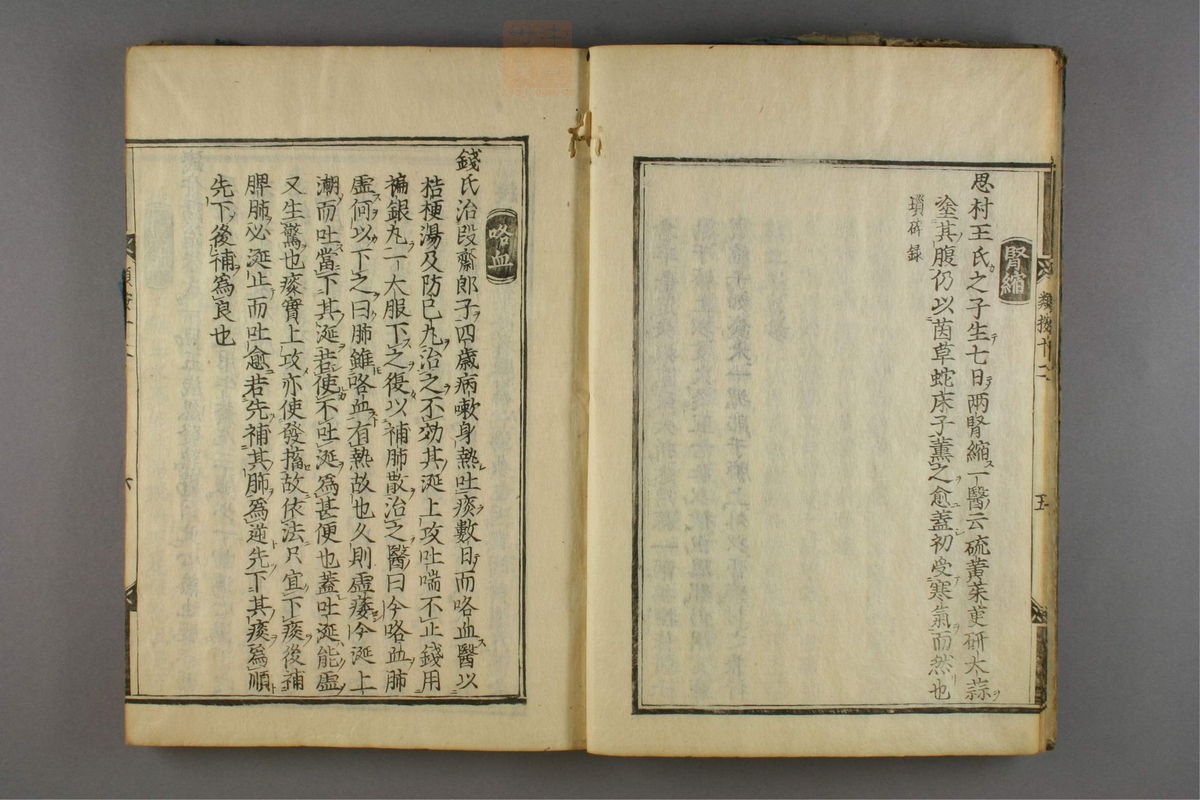 類按十二
五
腎縮
思村王氏之子生七日兩腎縮一醫云硫黃茱萸研大蒜
塗其腹仍以茵草蛇床子薰之愈蓋初受寒氣而然也
瑣碎錄
咯血
錢氏治段齋郎子四歲病嗽身熱吐痰數日而咯血醫以
桔梗湯及防已丸治之不効其涎上攻吐喘不止錢用
褊銀丸一大服下之復以補肺散治之醫曰今咯血肺
虛何以下之曰肺雖咯血有熱故也久則虛痿今涎上
潮而吐當下其涎若使不吐涎爲甚便也蓋吐涎能虛
又生驚也痰實上攻亦使發搐故依法只宜下痰後補
脾肺必涎止而吐愈若先補其肺爲逆先下其痰爲順
先下後補爲良也